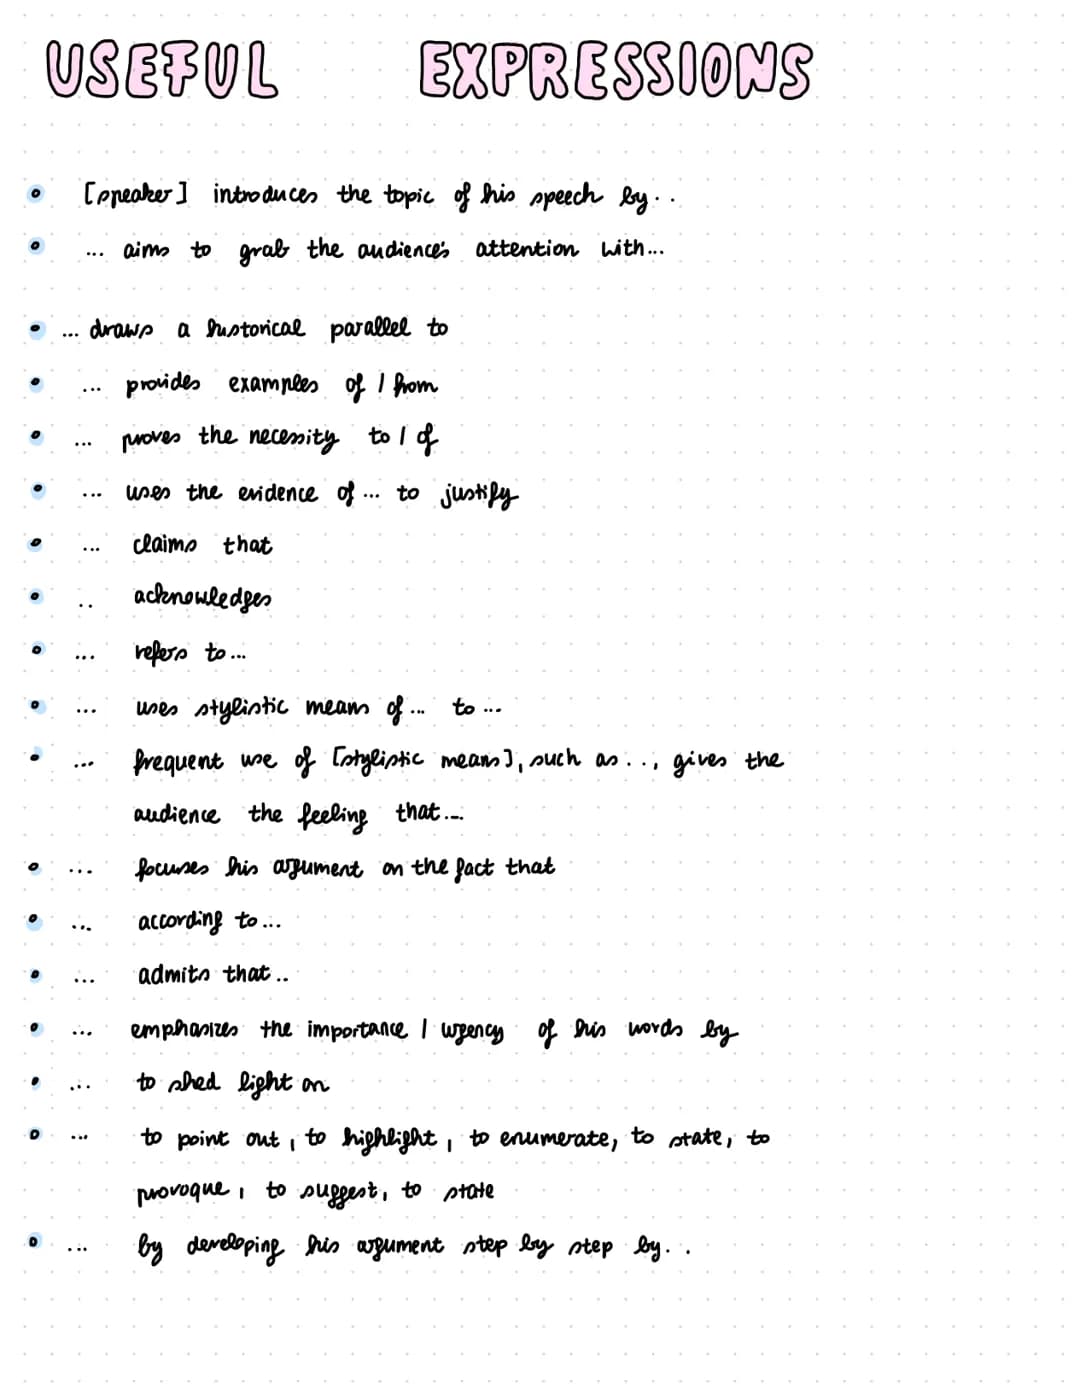 USEFUL EXPRESSIONS
• [speaker] introduces the topic of his speech by..
• ... aims to grab the audience's attention with...
• ... draws a historical parallel to
• ... provides examples of / from
• ... proves the necessity to / of
• ... uses the evidence of ... to justify
• ... claims that
• .. acknowledges
• ... refers to ...
• ... uses stylistic means of ... to ...
• ... frequent use of [stylistic means], such as .., gives the
audience the feeling that ...
• ... focuses his argument on the fact that
• ... according to ...
• ... admits that ..
• ... emphasizes the importance / urgency of his words by
• ... to shed light on
• ... to point out, to highlight, to enumerate, to state, to
provoque, to suggest, to state
• ... by developing his argument step by step by..